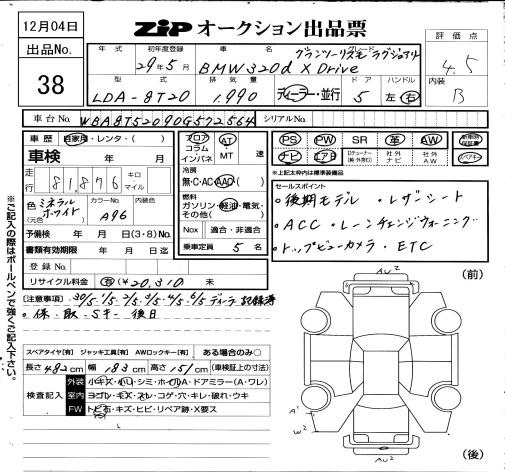 12月04日
ZiP オークション出品票
出品No.
38
年式
初年度登録
29年5月
車名
グレード
グランツーリスモ ラグジュアリー
BMW320d X Drive
評価点
4.5
型式
LDA-8T20
排気量
1,990
ディーラー・並行
ドア
5
ハンドル
左・右
内装
B
車台No.
WBA8T52090G572564
シリアルNo.
車歴 自家用・レンタ・( )
車検 年 月
走行
81,876
キロ
マイル
色 (元色)
ミネラルホワイト
カラーNo.
A96
内装色
予備検 年 月 日(3・8)No.
書類有効期限 年 月 日
登録No.
リサイクル料金 有(¥20,310) 未
フロア
コラム
インパネ
AT
MT 速
冷房
無・C・AC・AAC・( )
燃料
ガソリン・軽油・電気・
その他( )
Nox 適合・非適合
乗車定員 5 名
PS PW SR 革 AW
ナビ エアB
社外ナビ
社外AW
スペアキー
※上記太枠内は標準装備品
セールスポイント
。後期モデル ・レザーシート
。ACC ・レーンチェンジウォーニング
。トップビューカメラ ・ETC
(注意事項) 30/5. 1/5. 2/5. 3/5. 4/5. 6/5 ディーラ記録簿
。保・取・Sキー 後日
スペアタイヤ[有] ジャッキ工具[有] AWロックキー[有] ある場合のみ○
長さ 482cm 幅 183cm 高さ 151cm (車検証上の寸法)
検査記入
外装 小キズ・小凹・シミ・ホイルA・ドアミラー(A・ワレ)
室内 ヨゴレ・キズ・スレ・コゲ・穴・キレ・破れ・ウキ
FW トビ石・キズ・ヒビ・リペア跡・X要ス
※ご記入の際はボールペンで強くご記入下さい。
AU2
(前)
A1
W2
AU2
(後)